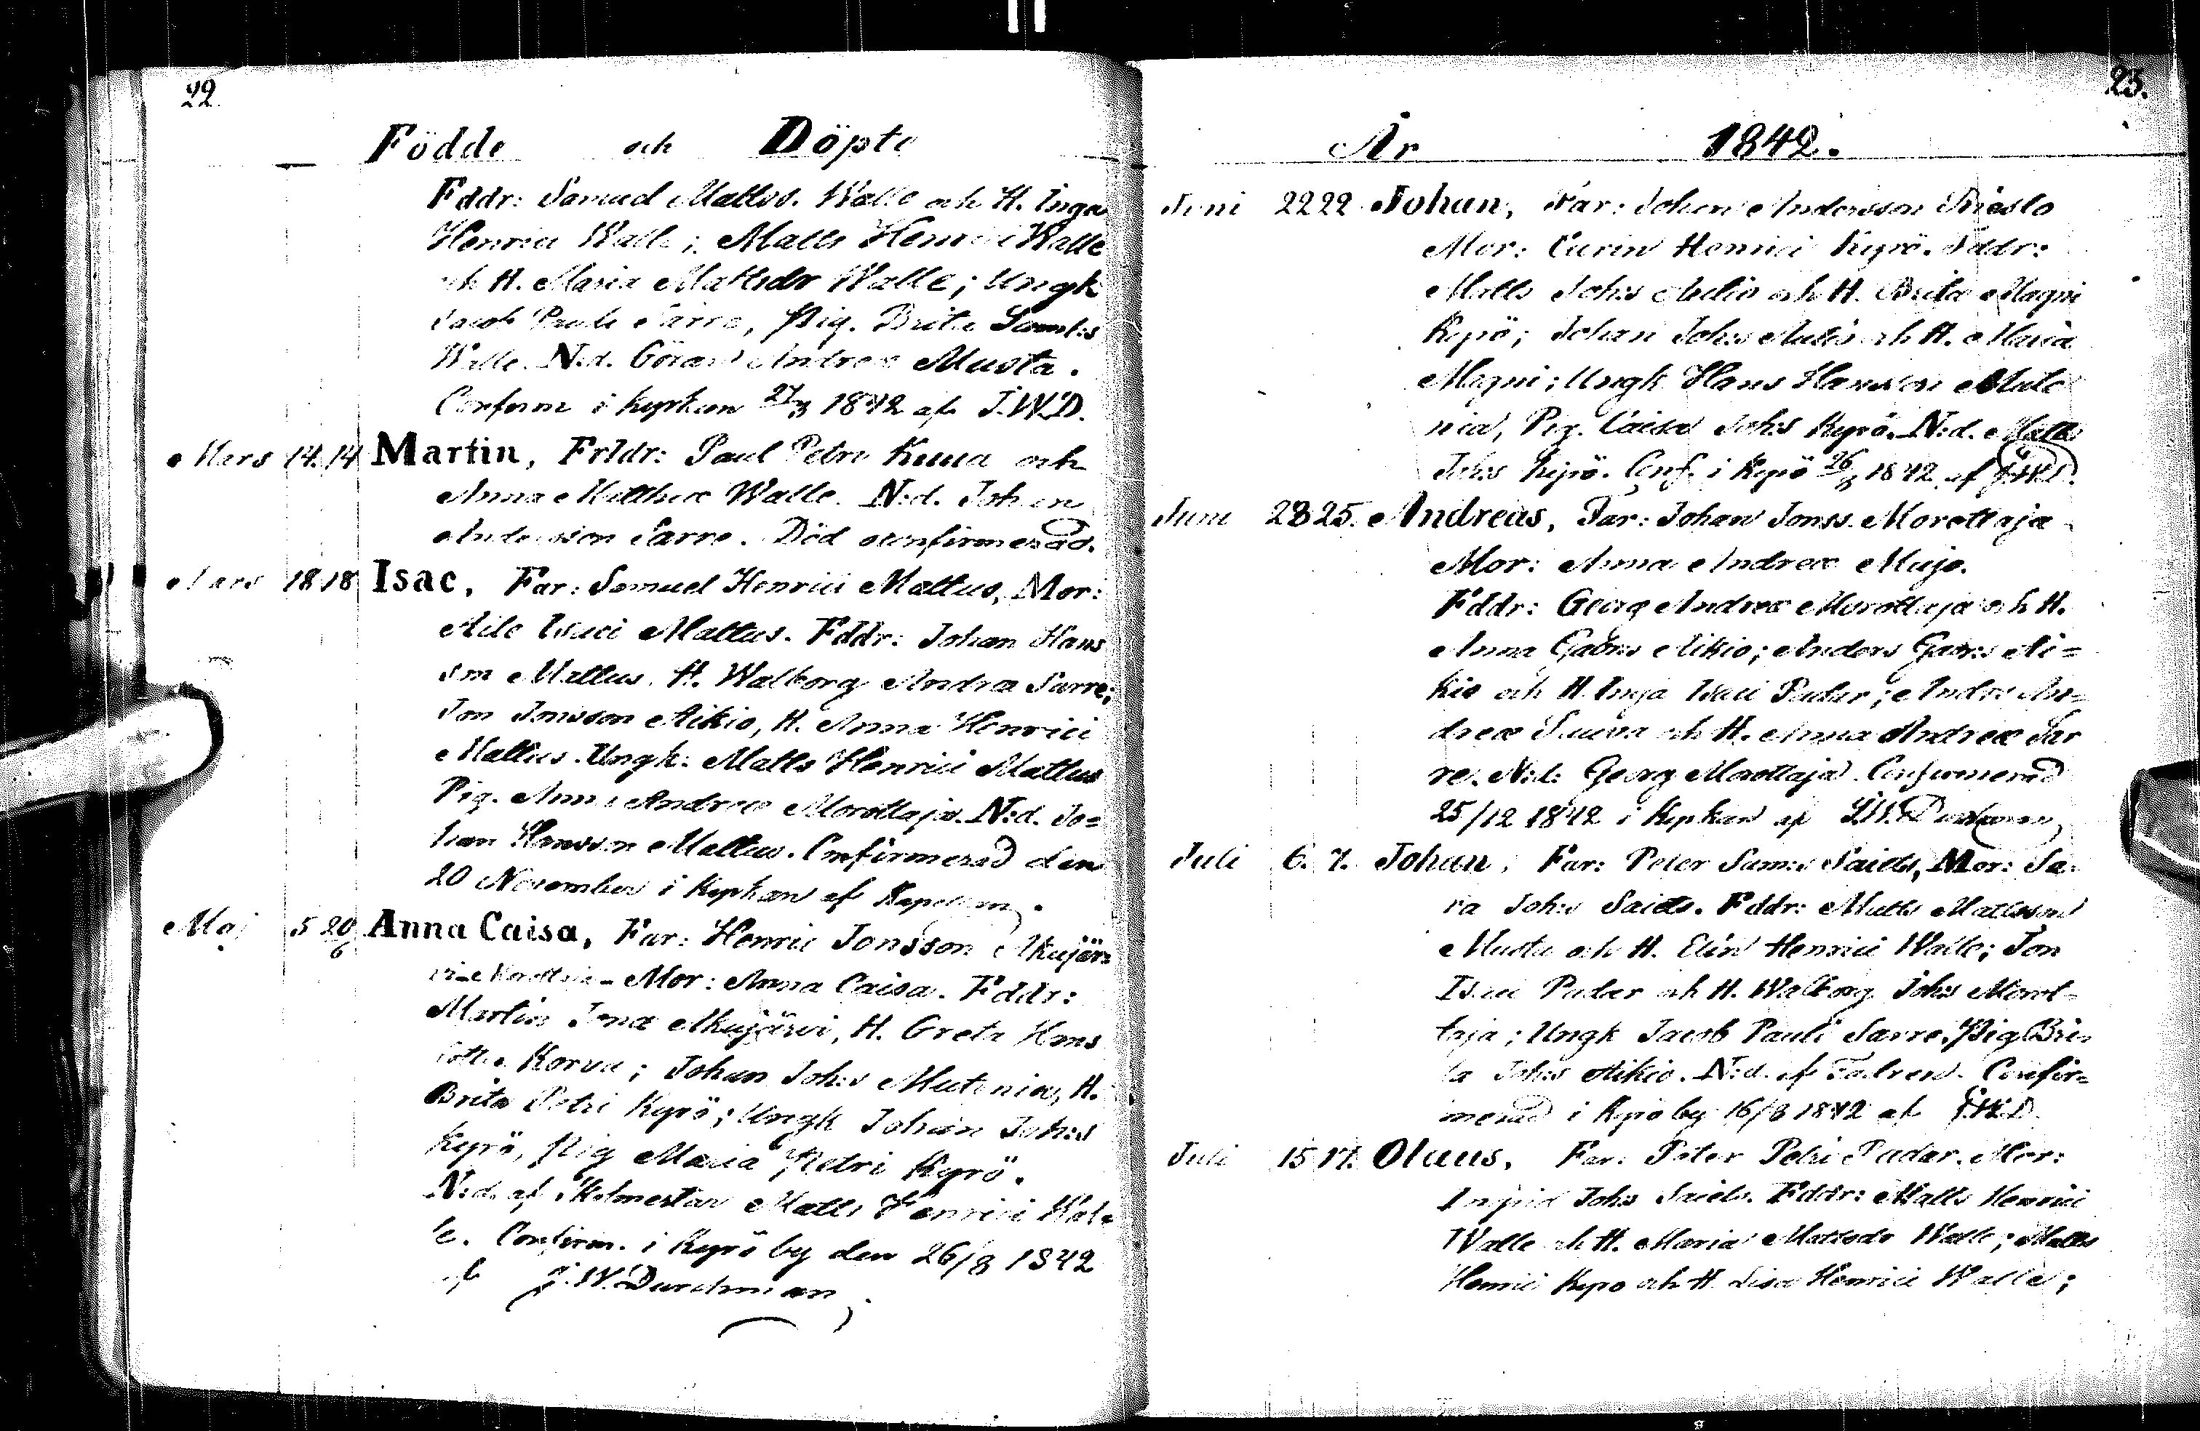 22
Födde och Döpte
Fddr: Samuel Mattss. Walle och H. Inga
Henrici Walle; Matts Henrici Walle
och H. Maria Mattsdr Walle; Ungk
Jacob Pauli Sarre, Pig. Brita Saml:s
Walle. N:d. Göran Andreæ Musta.
Conferm i kyrkan 27/3 1842 af J.W.D.
Mars 14. 14 Martin, Frldr: Paul Petri Kuuva och
Anna Matthiæ Walle. N:d. Johan
Andersson Sarre. Död oconfirmerad.
Mars 18 18 Isac, Far: Samuel Henrici Mattus, Mor:
Aile Isaci Mattus. Fddr: Johan Hans
son Mattus. H. Walborg Andreæ Sarre;
Jon Jonsson Aikio, H. Anna Henrici
Mattus. Ungk: Matts Henrici Mattus
Pig. Anna Andreæ Morottaja. N:d. Jo=
han Hansson Mattus. Confirmerad den
20 November i kyrkan af Kapellan.
Maj 5 20/6 Anna Caisa, Far: Henric Jonsson Akujär=
vi Mor: Anna Caisa. Fddr:
Martin Jonæ Akujärvi, H. Greta Hans
dotter Korva; Johan Joh:s Mutenia, H.
Brita Petri Kyrö; Ungk Johan Joh:s
Kyrö, Pig Maria Petri Kyrö.
N:d. af Matts Henrici Wal=
le. Confirm. i Kyrö by den 26/8 1842
af J.W. Durchman
23.
År 1842.
Juni 22 22 Johan, Far: Johan Andersson
Mor: Carin Henrici Kyrö. Fddr:
Matts Joh:s och H. Brita Magni
Kyrö; Johan Joh:s och H. Maria
Magni; Ungk Hans Hansson Mute
nia, Pig. Caisa Joh:s Kyrö. N:d. Matts
Joh:s Kyrö. Conf. i Kyrö 26/8 1842 af J.W.D.
Juni 28 25. Andreas, Far: Johan Jonss. Morottaja
Mor: Anna Andreæ Mujo.
Fddr: Georg Andreæ Morottaja och H.
Anna Gabr:s Aikio; Anders Gabr:s Ai=
kio och H. Inga Isaci Padar; Andr:s An=
dreæ och H. Anna Andreæ Sar
re. N:d: Georg Morottaja. Confirmerad
25/12 1842 i kyrkan af J.W. Durchman
Juli 6. 7. Johan, Far: Peter Sam:s Saiets, Mor: Sa=
ra Joh:s Saiets. Fddr: Matts Mattsson
Musta och H. Elin Henrici Walle; Jon
Isaci Padar och H. Walborg Joh:s Morot=
taja; Ungk Jacob Pauli Sarre, Pig Bri=
ta Joh:s Aikio. N:d. af Fadren. Confir=
merad i Kyrö by 16/8 1842 af J.W.D.
Juli 15 17. Olaus, Far: Peter Petri Padar. Mor:
Ingrid Joh:s Saiets. Fddr: Matts Henrici
Walle och H. Maria Mattsdr Walle; Matts
Henrici Kyrö och H. Lisa Henrici Walle;